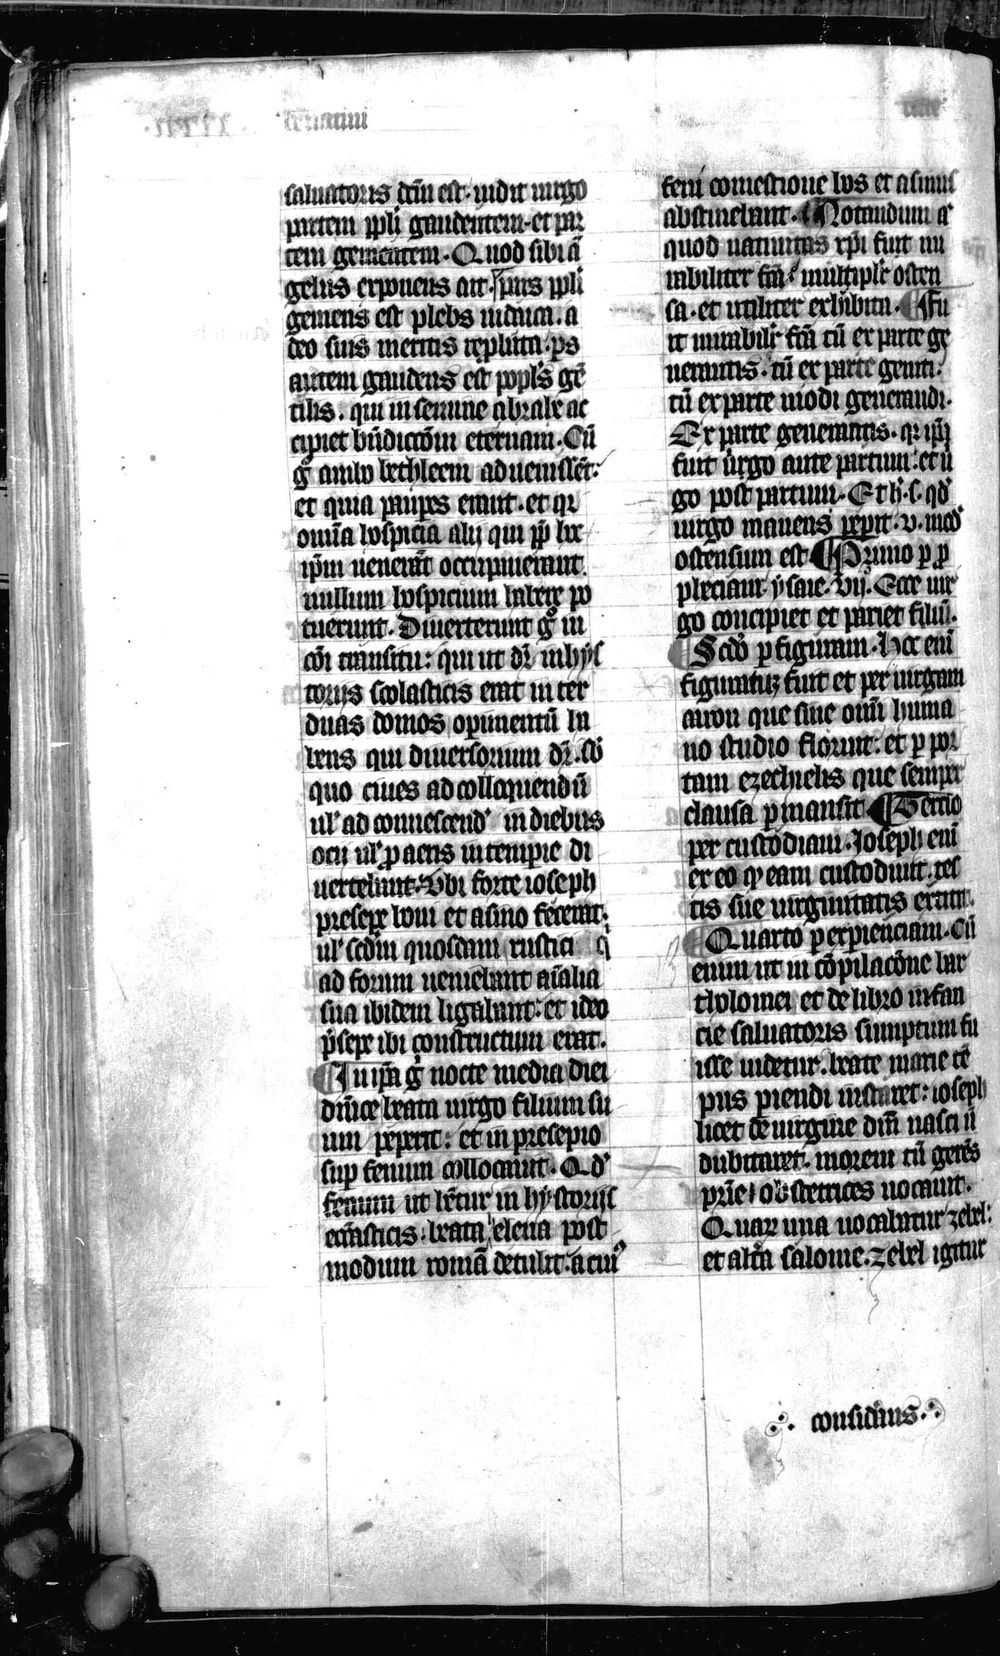 saluatoris dc̄m est. uidit uirgo
partem ppl̄i gaudentem. et par
tem gementem. Quod sibi ā
gelus exponens ait. pars ppl̄i
gemens est plebs iudaica. a
deo suis meritis repulsa. ps
autem gaudens est popl's gē
tilis. qui in semine abrahe ac
cipiet bn̄dictōm eternam. Cū
gͦ ambo bethleem aduenissēt:
et quia paupes erant. et qr
omīa hospicia alij qui pp̄ hoc
ip̄m uenerāt occupauerant.
nullum hospicium habere po
tuerunt. Diuerterunt gͦ in
cōi transitu: qui ut dr̄ in hys
torijs scolasticis erat inter
duas domos opimentū ha
bens qui diuersorium dr̄. sb̄
quo ciues ad colloquendū
ul' ad conuescend' in diebus
ocij ul' p aeris intemperie di
uertebant. Vbi forte ioseph
presepe boui et asino fecerat:
ul' scd̄m quosdam rustici q̄
ad forum ueniebant aīalia
sua ibidem ligabant: et ideo
p̄sepe ibi constructum erat.
In ip̄a gͦ nocte media diei
dn̄ice beata uirgo filium su
um peperit: et in presepio
sup fenum collocauit. Qd'
fenum ut hētur in hystorijs
ecc̄asticis. beata elena post
modum romā detulit. a cuiꝰ
feni comestione bos et asinus
abstinebant. Notandum ā
quod natiuitas xp̄i fuit mi
rabiliter fc̄a. multiplr̄ osten
sa. et utiliter exhibita. Fu
it mirabilr̄ fc̄a tū ex parte ge
nerantis. tū ex parte geniti:
tū ex parte modi generandi.
Ex parte generantis. qr ip̄a
fuit u̇rgo ante partum: et u̇
go post partum. Et h̄. s. qd'
uirgo manens pep̄it. v. mod'
ostensum est Primo p p
pheciam. ysaie. vij. Ecce uir
go concipiet et pariet filiū.
Scdō p figuram. Hoc enī
figuratuꝫ fuit et per uirgam
aaron que sine omī huma
no studio floruit: et p por
tam ezechielis que semper
clausa pmansit Tercio
per custodiam. Ioseph enī
ex eo qꝫ eam custodiuit. tes
tis sue uirginitatis extitit.
Quarto p experienciam. Cū
enim ut in cōpilacōne bar
tholomei et de libro infan
cie saluatoris sumptum fu
isse uidetur. beate marie tē
pus pariendi instaret: ioseph
licet de uirgine dm̄ nasci nō
dubitaret. morem tn̄ gerēs
prīe obstetrices uocauit.
Quaꝝ una uocabatur zebel:
et altā salome. zebel igitur
considerās